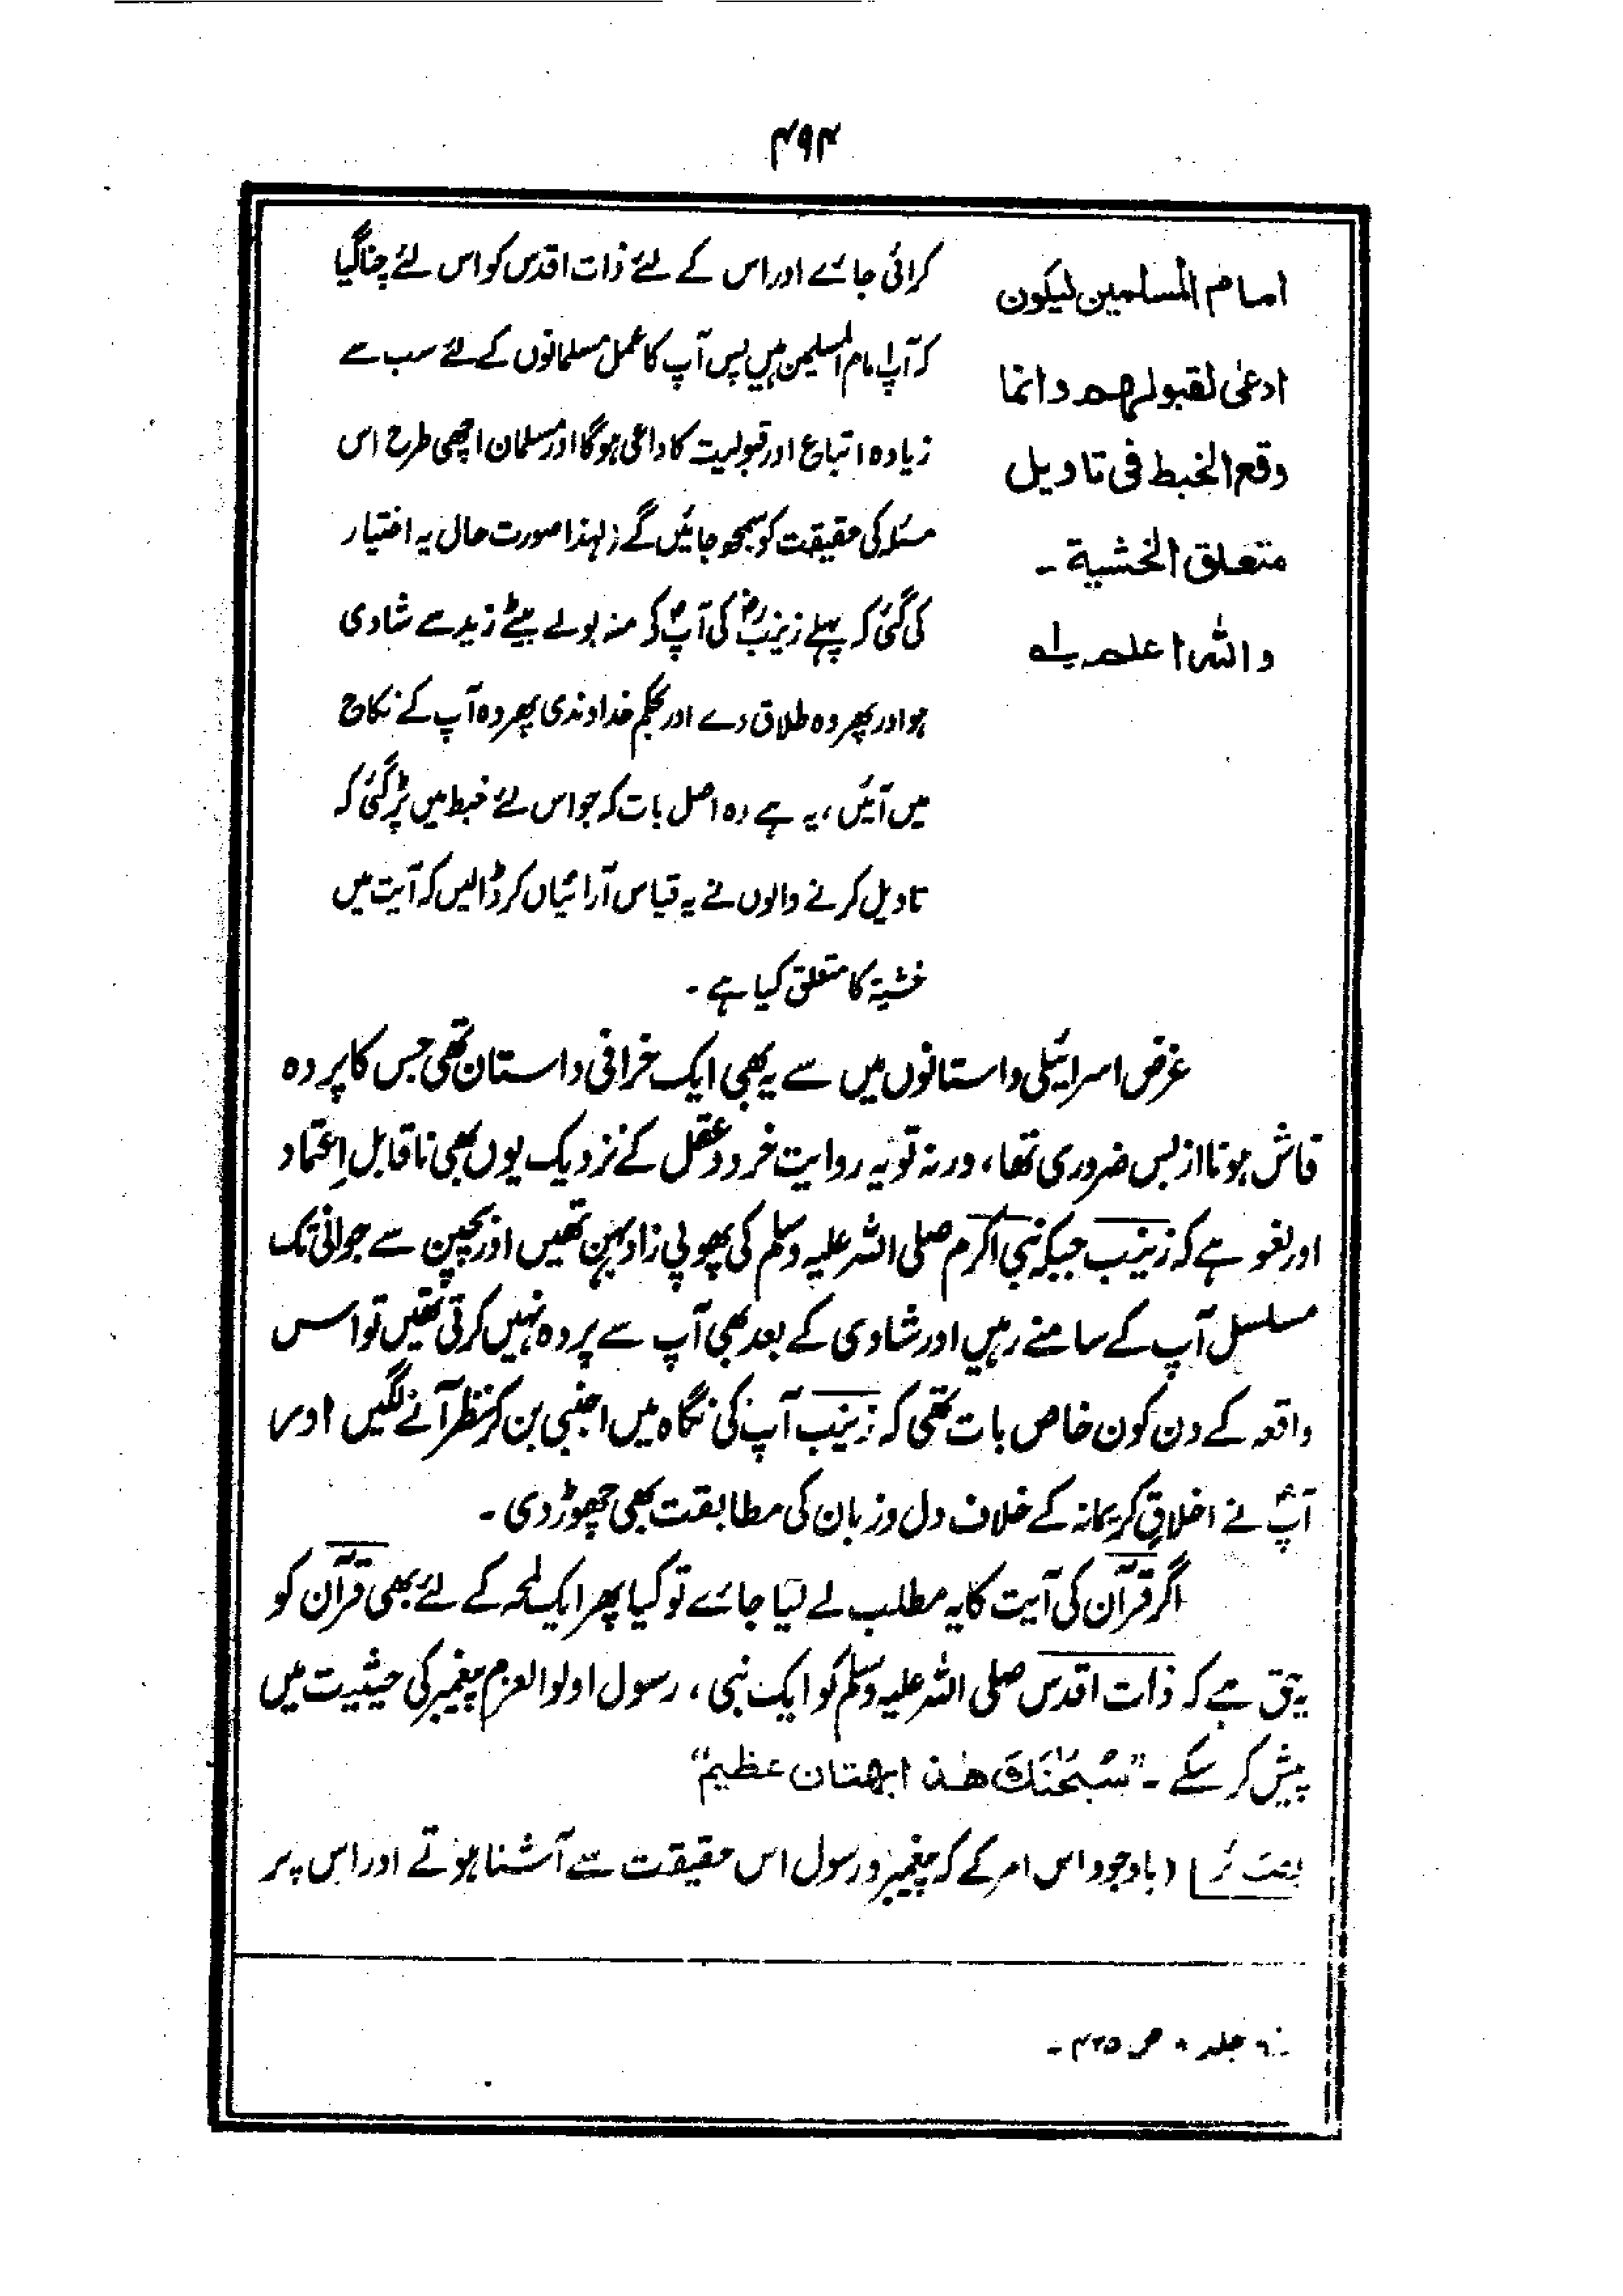 ۴۹۴
امام المسلمین لیکون
ادعیٰ لقبولهم وانما
وقع الخبط فی تاویل
متعلق الخشیة -
والله اعلم له
کرائی جائے اور اس کے لئے ذات اقدس کو اس لئے چنا گیا
کہ آپ امام المسلمین ہیں پس آپ کا عمل مسلمانوں کے لئے سب سے
زیادہ اتباع اور قبولیت کا داعی ہوگا اور مسلمان اچھی طرح اس
مسئلہ کی حقیقت کو سمجھ جائیں گے لہذا صورت حال یہ اختیار
کی گئی کہ پہلے زینبؓ کی آپؐ کے منہ بولے بیٹے زید سے شادی
ہو اور پھر وہ طلاق دے اور بحکم خداوندی پھر وہ آپ کے نکاح
میں آئیں، یہ ہے وہ اصل بات کہ جو اس لئے خبط میں پڑ گئی کہ
تاویل کرنے والوں نے یہ قیاس آرائیاں کر ڈالیں کہ آیت میں
خشیۃ کا متعلق کیا ہے ۔
غرض اسرائیلی داستانوں میں سے یہ بھی ایک خرافی داستان تھی جس کا پردہ
فاش ہونا ازبس ضروری تھا، ورنہ تو یہ روایت خرد و عقل کے نزدیک یوں بھی ناقابلِ اعتماد
اور لغو ہے کہ زینب جبکہ نبی اکرم صلی اللہ علیہ وسلم کی پھوپی زاد بہن تھیں اور بچپن سے جوانی تک
مسلسل آپ کے سامنے رہیں اور شادی کے بعد بھی آپ سے پردہ نہیں کرتی تھیں تو اسس
واقعہ کے دن کون خاص بات تھی کہ زینب آپ کی نگاہ میں اجنبی بن کر نظر آنے لگیں اور
آپؐ نے اخلاقِ کریمانہ کے خلاف دل و زبان کی مطابقت بھی چھوڑ دی ۔
اگر قرآن کی آیت کا یہ مطلب لے لیا جائے تو کیا پھر ایک لمحہ کے لئے بھی قرآن کو
یہ حق ہے کہ ذات اقدس صلی اللہ علیہ وسلم کو ایک نبی، رسول اولوالعزم پیغمبر کی حیثیت میں
پیش کر سکے ۔ "سُبْحٰنَكَ هٰذا بهتان عظیم"
(باوجود اس امر کے کہ پیغمبر و رسول اس حقیقت سے آشنا ہوتے اور اس پر
جلد ۸ ص ۴۲۵ ۔